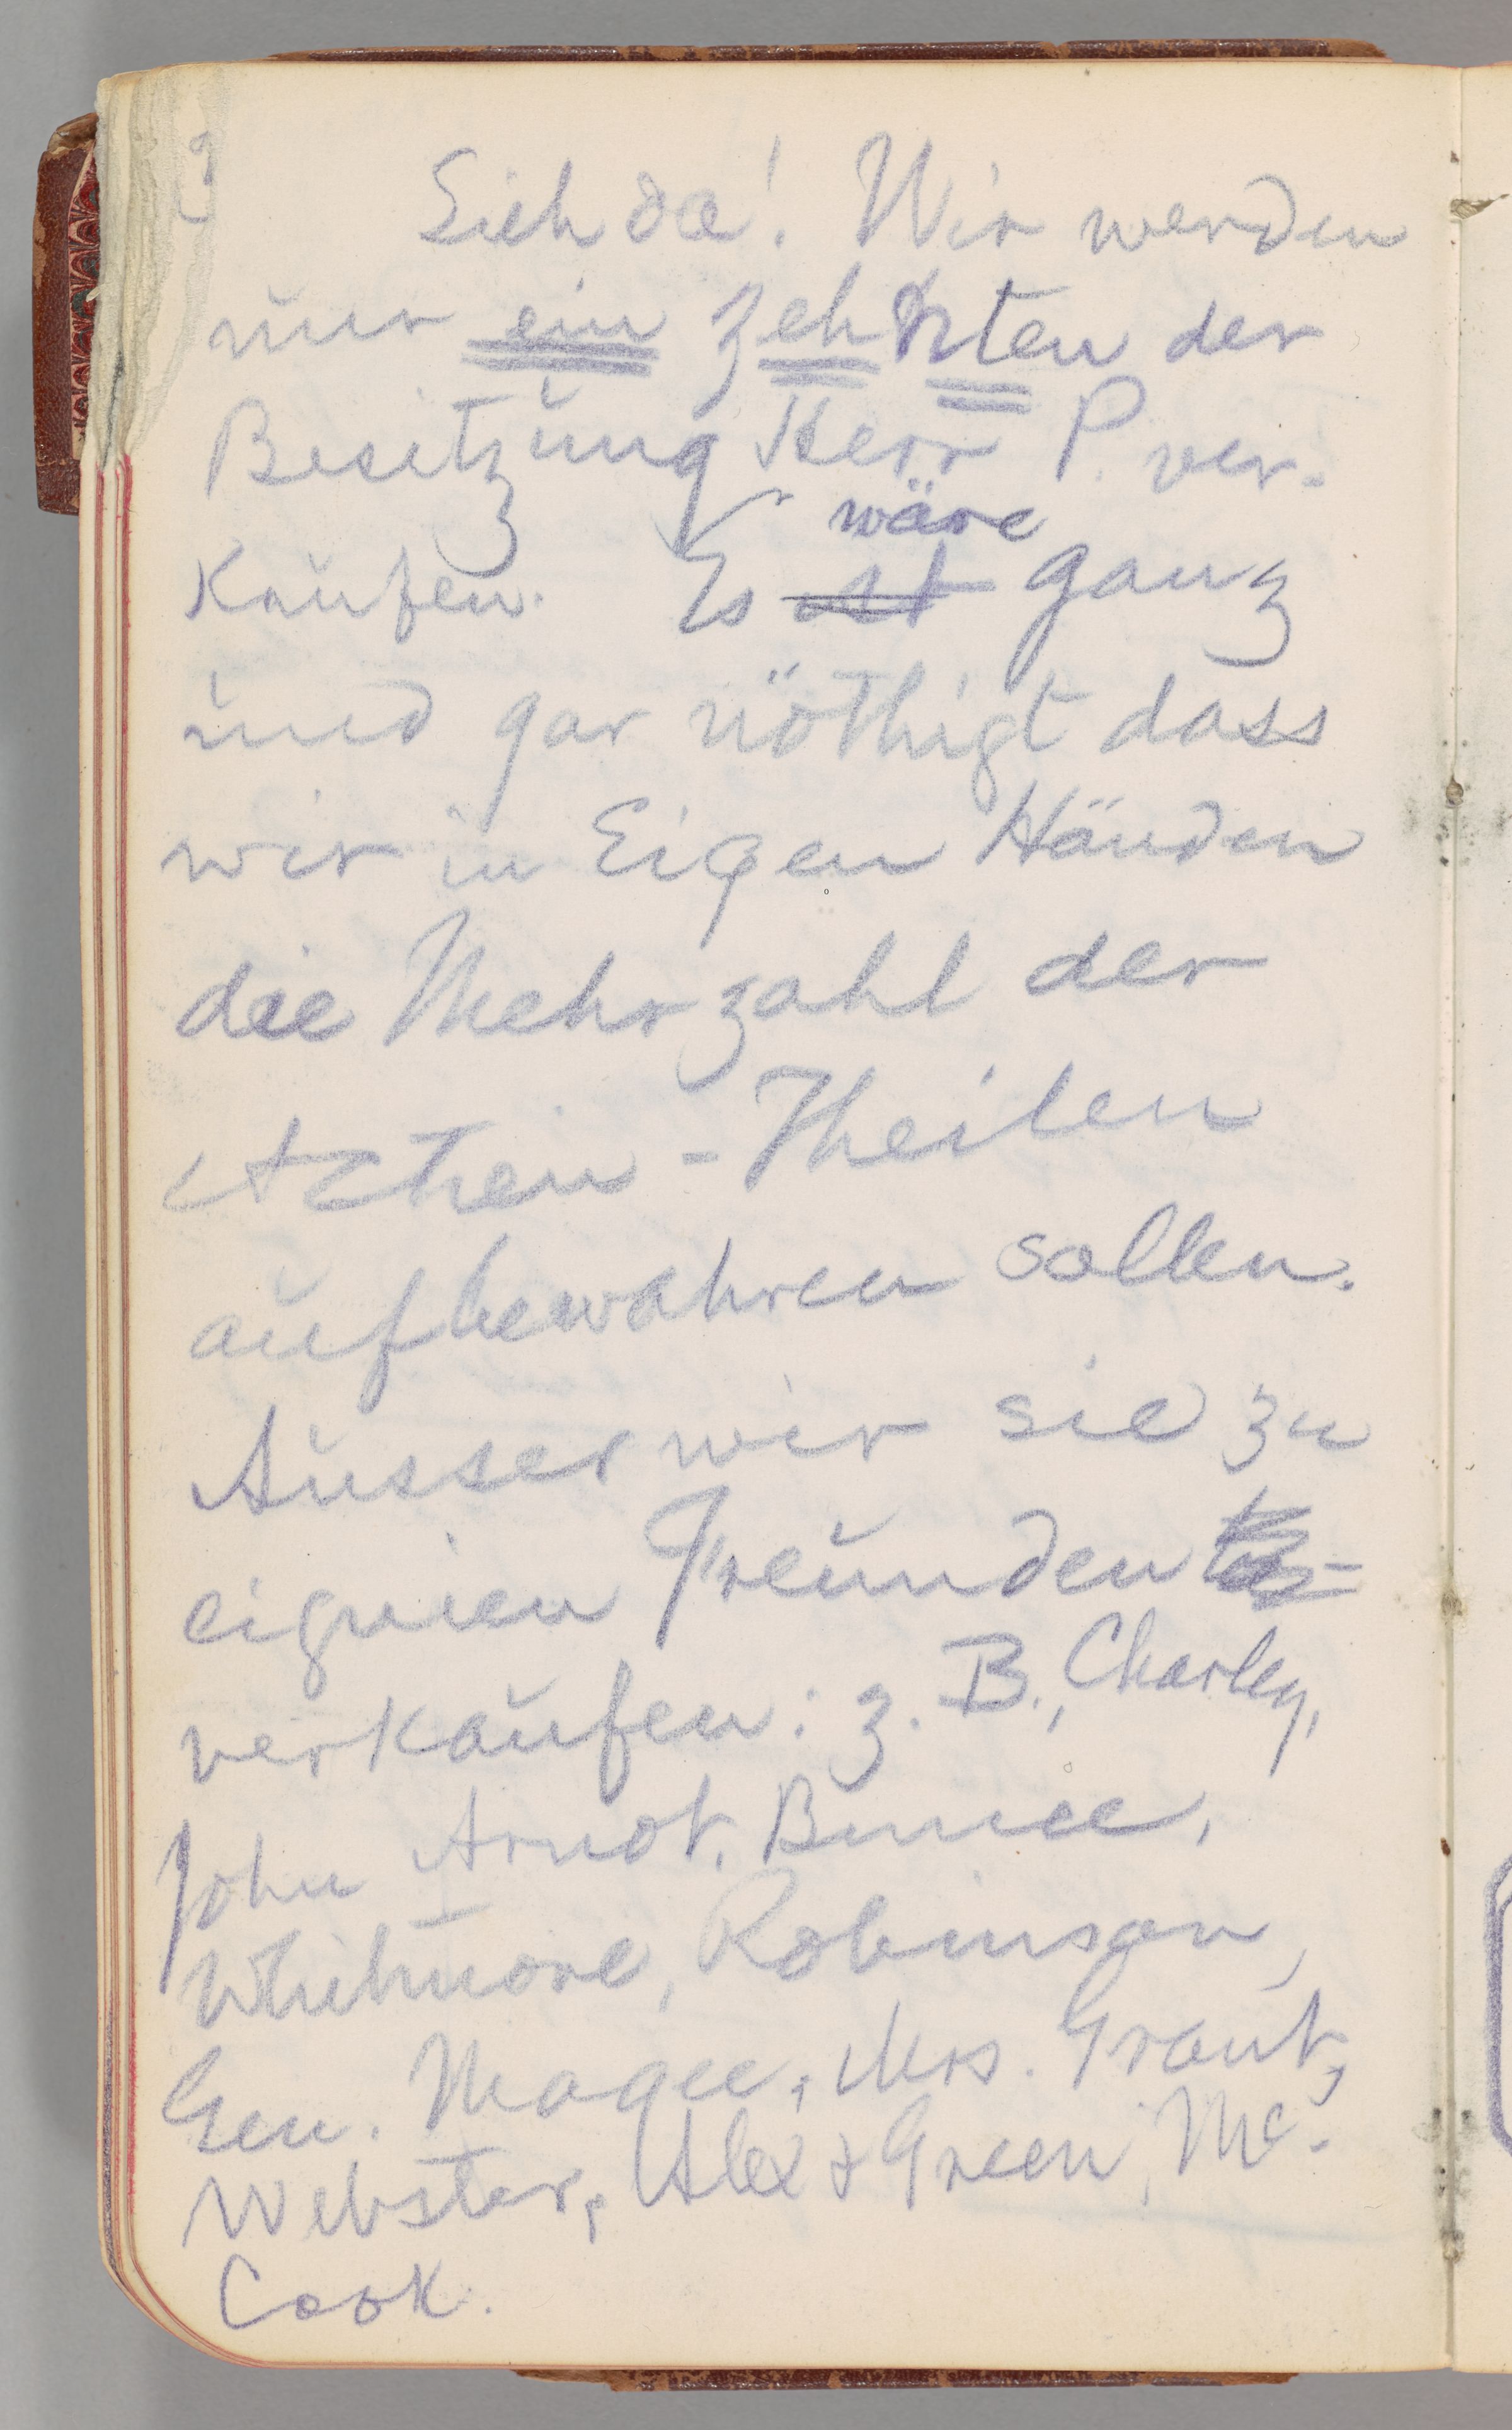 Sieh da! Wir werden
nur ein zehnten der
Besitzung Herr P. ver-
kaufen. Es ist wäre ganz
und gar nöthigt dass
wir in Eigen Händen
die Mehrzahl der
Actien-Theilen
aufbewahren sollen.
Ausser wir sie zu
eignien Freunden
verkaufen: z. B., Charley,
John Arnot, Bunce,
Whitmore, Robinson,
Gen. Magee, Mrs. Grant,
Webster, Alex & Green, Mc.
Cook.